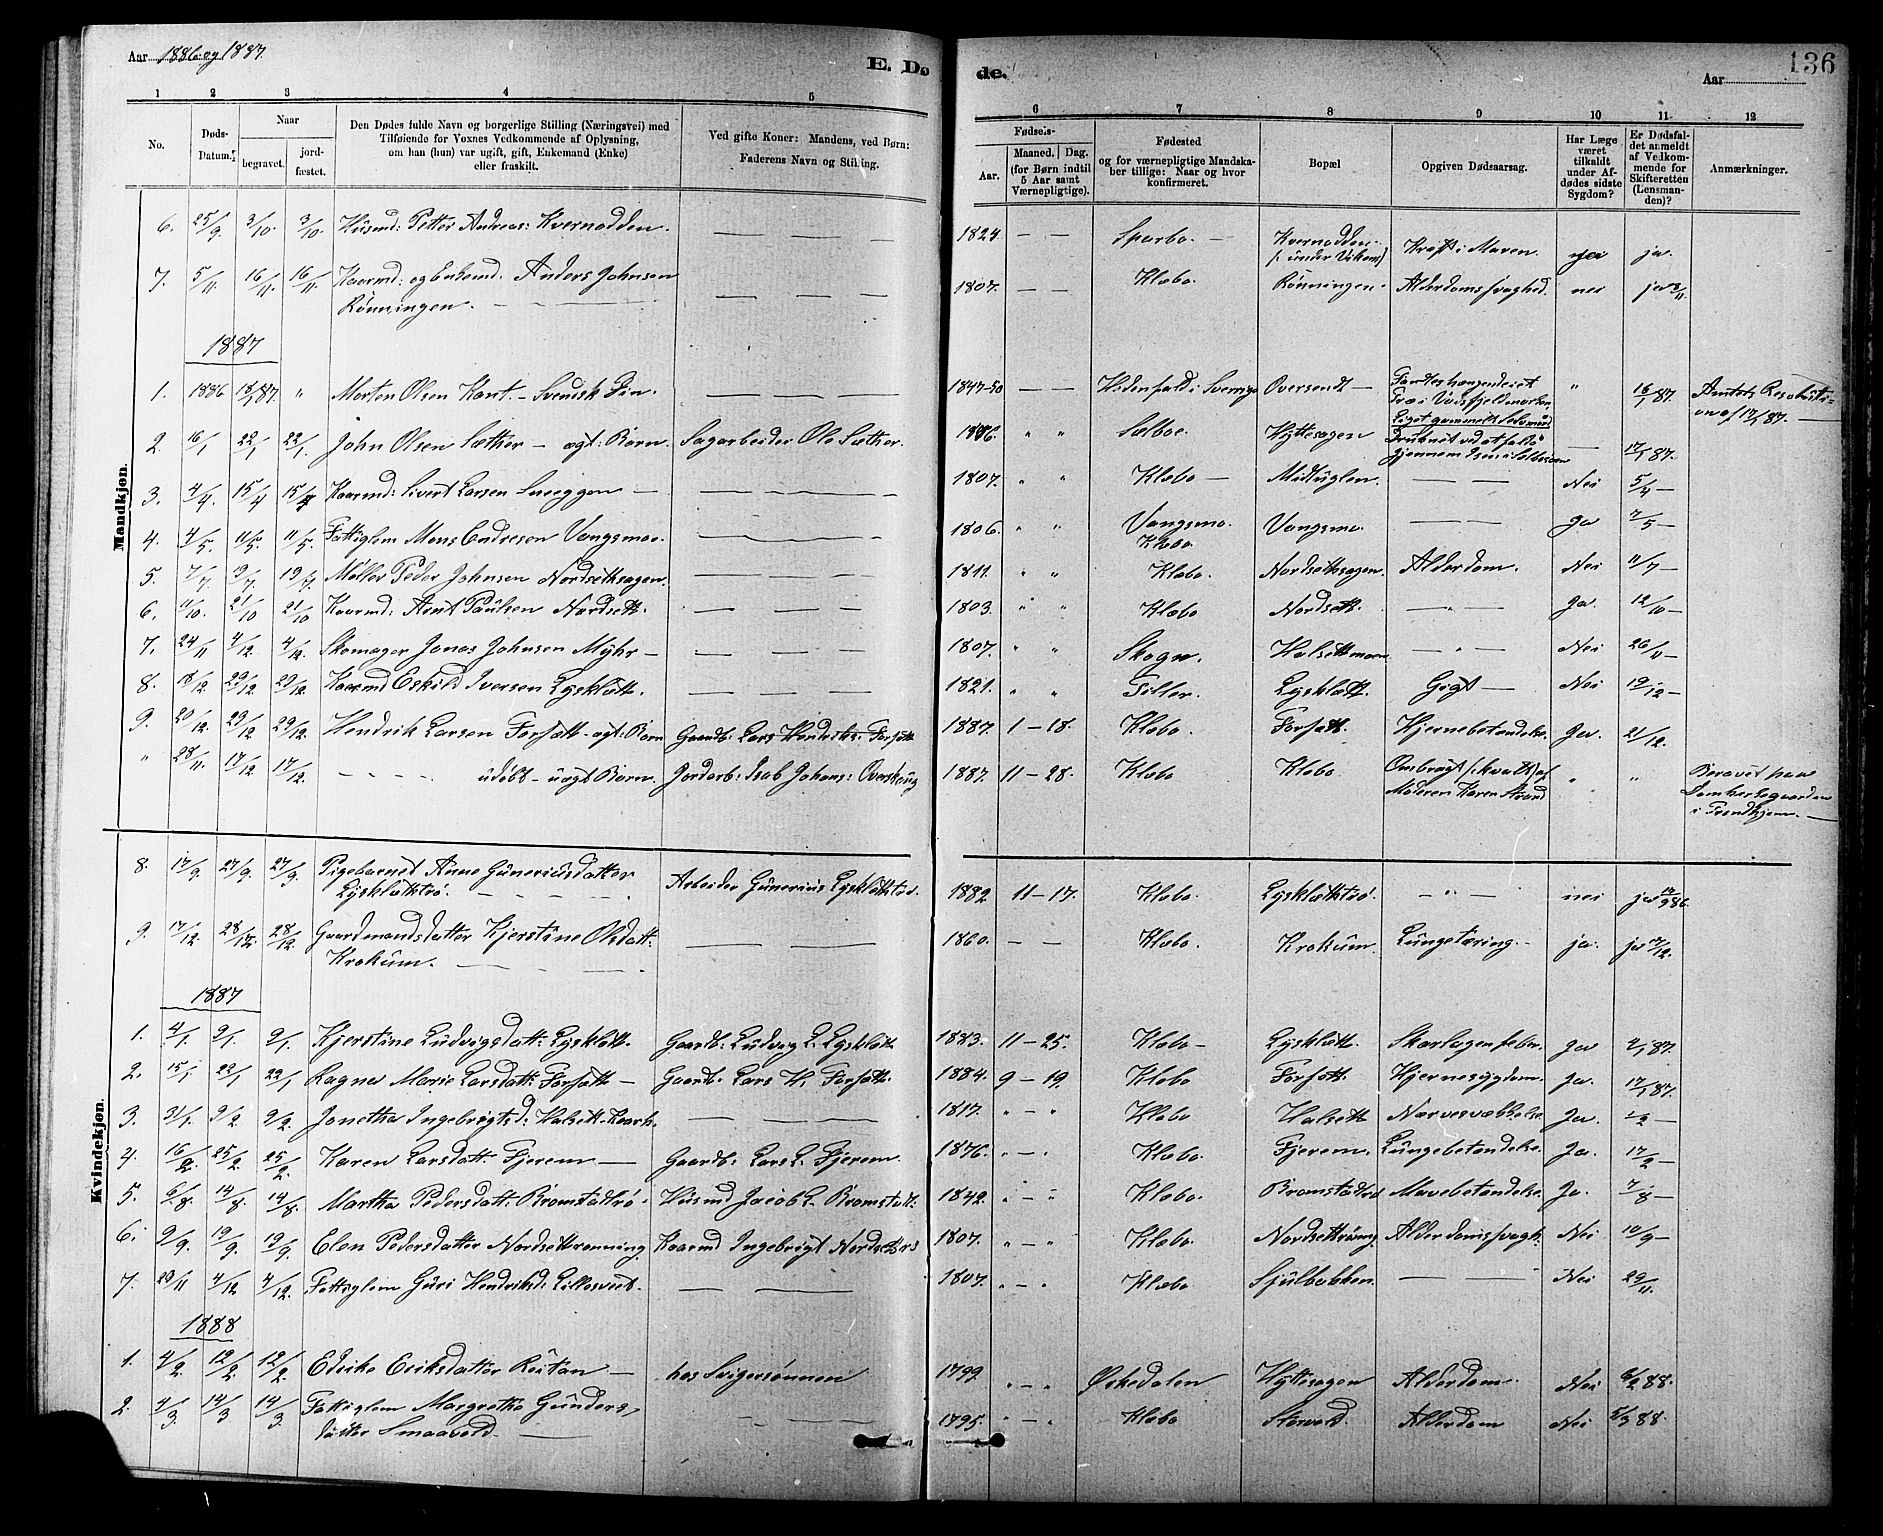 Aar 1886 og 1887.
E. Dø
de.
Aar
136
1 2 3 4 5 6 7 8 9 10 11 12
No.
Døds-Datum.
Naar
begravet.
jordfæstet.
Den Dødes fulde Navn og borgerlige Stilling (Næringsvei) med
Tilføiende for Voxnes Vedkommende af Oplysning,
om han (hun) var ugift, gift, Enkemand (Enke)
eller fraskilt.
Ved gifte Koner: Mandens, ved Børn:
Faderens Navn og Stilling.
Fødsels-
Aar.
Maaned. Dag.
(for Børn indtil
5 Aar samt
Værnepligtige).
Fødested
og for værnepligtige Mandska-
ber tillige: Naar og hvor
konfirmeret.
Bopæl
Opgiven Dødsaarsag.
Har Læge
været
tilkaldt
under Af-
dødes sidste
Sygdom?
Er Dødsfal-
det anmeldt
af Vedkom-
mende for
Skifteretten
(Lensman-
den)?
Anmærkninger.
Mandkjøn.
6. 25/9. 3/10. 3/10. Husmd: Petter Andreas: Kvernodden. — — — 1824 — — Sparbo. — Kvernodden Kræft i Maven. ja.
7. 5/11. 16/11. 16/11. Kaarmd: og Enkemd. Anders Johnsen — — — 1807. — — Klæbo. Rönningen. Alderdomssvaghed. nei
Rönningen.
1887
1. 1886 18/1 87. " Morten Olsen Kant. — Svensk Fin. — — — 1847-50 — — i Sverrige Oversendt — Fandtes hængende i et " 16/1 87. Amtets Resoluti-
Træ i Vadsfjeldmarken on af 17/1 87. —
2. 16/1 22/1 22/1. John Olsen Sæther — ægt: Barn. Sagarbeider Ole Sæther. 1886. " " Sælboe. Hyttesagen Druknet ved at falde — 17/1 87.
gjennem Isen i Sælbosøen
3. 4/4. 15/4 15/4 Kaarmd: Sivert Larsen Sneggen — — — — 1807. " " Klæbo — Midtuglen. — — Nei 5/4 —
4. 4/5. 11/5. 11/5. Fattiglem Mons Endreson Vangsmoe. — — — 1806. " " Vangsmo. Vangsmo. — — Ja 7/5 —
Klæbo
5. 7/7. 19/7. 19/7. Møller Peder Johnsen Nordsetsagen. — — — 1811. " " Klæbo. Nordsetsagen. Alderdom. Nei 11/7 —
6. 11/10. 21/10 21/10 Kaarmd: Arnt Paulsen Nordsett. — — — 1803. " " Klæbo Nordsett. — " — Ja. 12/10 —
7. 24/11 4/12. 4/12. Skomager Jonas Johnsen Myhr — — — — 1807. " " Skogn. Halsetmoen — " — Nei 26/11 —
8. 18/12. 29/12 29/12. Kaarmd Eskild Iversen Lysklætt. — — — 1821. " " Tiller. Lysklætt. Gigt — Nei 19/12 —
9. 20/12. 29/12 29/12. Hendrik Larsen Forsætt — ægt: Barn Gaardb: Lars Hendriks: Forsætt 1887. 1 — 18. Klæbo. Forsætt. Hjernebetændelse. Ja. 21/12.
" 28/11. 17/12 17/12. — — — — udöbt — uægt Barn. Jordarb: Isak Johans: Overshaug 1887. 11 — 28. Klæbo Klæbo Ombragt (: kvalt) af " " Beravet paa
Moderen Karen Strand Domkirkegaarden
i Trondhjem. —
Kvindekjøn.
8. 17/9. 27/9. 27/9. Pigebarnet Anne Guneriusdatter Arbeider Gunerius Lysklættrö. 1882 11 — 17. Klæbo. Lysklættrö. — " — nei ja 19/9 86.
Lysklættrö. — — — —.
9. 17/12. 28/12. 28/12 Gaardmandsdatter Kjerstine Olsdatt. — — 1860. — — Klæbo. Krokum. Lungetæring. — ja.
Krokum. — — —
1887
1. 4/1. 9/1. 9/1. Kjerstine Ludvigsdatt: Lysklætt. Gaardb: Ludvig L. Lysklætt 1883. 11 — 25. Klæbo — Lysklætt. Skarlagensfeber. Ja
2. 15/1. 22/1 22/1 Ragna Marie Larsdatt: Forsætt — Gaardb: Lars H. Forsætt. 1884. 9 — 19. Klæbo Forsætt. Hjernesygdom. Ja. 17/1 87.
3. 31/1. 9/2 9/2. Jonetha Ingebrigtsd: Halsett. Kaark. — — — 1817. " — " Klæbo Halsett Nervesvækkelse Ja.
4. 16/2. 25/2. 25/2. Karen Larsdatt. Fjerem — Gaardb: Lars L. Fjerem. 1876. " — " Klæbo. Fjerem. Lungebetændelse. Ja. 17/2 —
5. 6/8 14/8. 14/8. Martha Pedersdatt: Bromstadtrö. Husmd Jacob L. Bromstadt. 1842. " — " Klæbo. Bromstadtrö Mavebetændelse. Ja. 7/8 —
6. 9/9. 19/9. 19/9. Elen Pedersdatter Nordsettrønning Kaarmd Ingebrigt 1807. " — " Klæbo Nordsettröning Alderdomssvagh: Nei 10/9 —
7. 20/11 4/12 4/12. Fattiglem Guri Hendriksd: Lillesvebt. — — — 1807. " — " Klæbo. Sjulbakken. — — Nei 29/11.
1888
1. 4/2. 12/2. 12/2. Edike Eriksdatter Reitan — hos Svigersønnen 1799. " — " Ørkedalen Hyttesagen Alderdom. Nei 6/2 88.
2. 4/3. 14/3 14/3. Fattiglem Margretha Gunders- — — — 1795. " — " Klæbo Alderdom Nei 5/3 88.
datter Smaavold. —